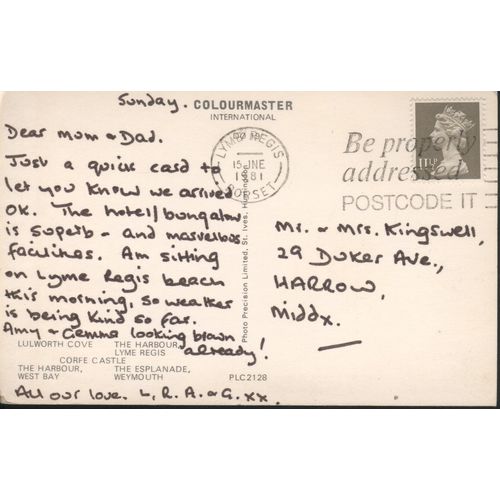 Sunday.
COLOURMASTER
INTERNATIONAL
Dear Mum & Dad.
Just a quick card to
let you know we arrived
OK. The hotel/bungalow
is superb - and marvellous
facilities. Am sitting
on Lyme Regis beach
this morning, so weather
is being kind so far.
Amy & Gemma looking brown
already!
All our love. L, R, A, & G. xx.
LULWORTH COVE THE HARBOUR,
LYME REGIS
CORFE CASTLE
THE HARBOUR, THE ESPLANADE,
WEST BAY WEYMOUTH
PLC2128
Photo Precision Limited, St. Ives, Huntingdon
LYME REGIS
15 JNE
1981
DORSET
Be properly
addressed
POSTCODE IT
11½P
Mr. & Mrs. Kingswell,
29 Duker Ave.,
HARROW,
Middx.